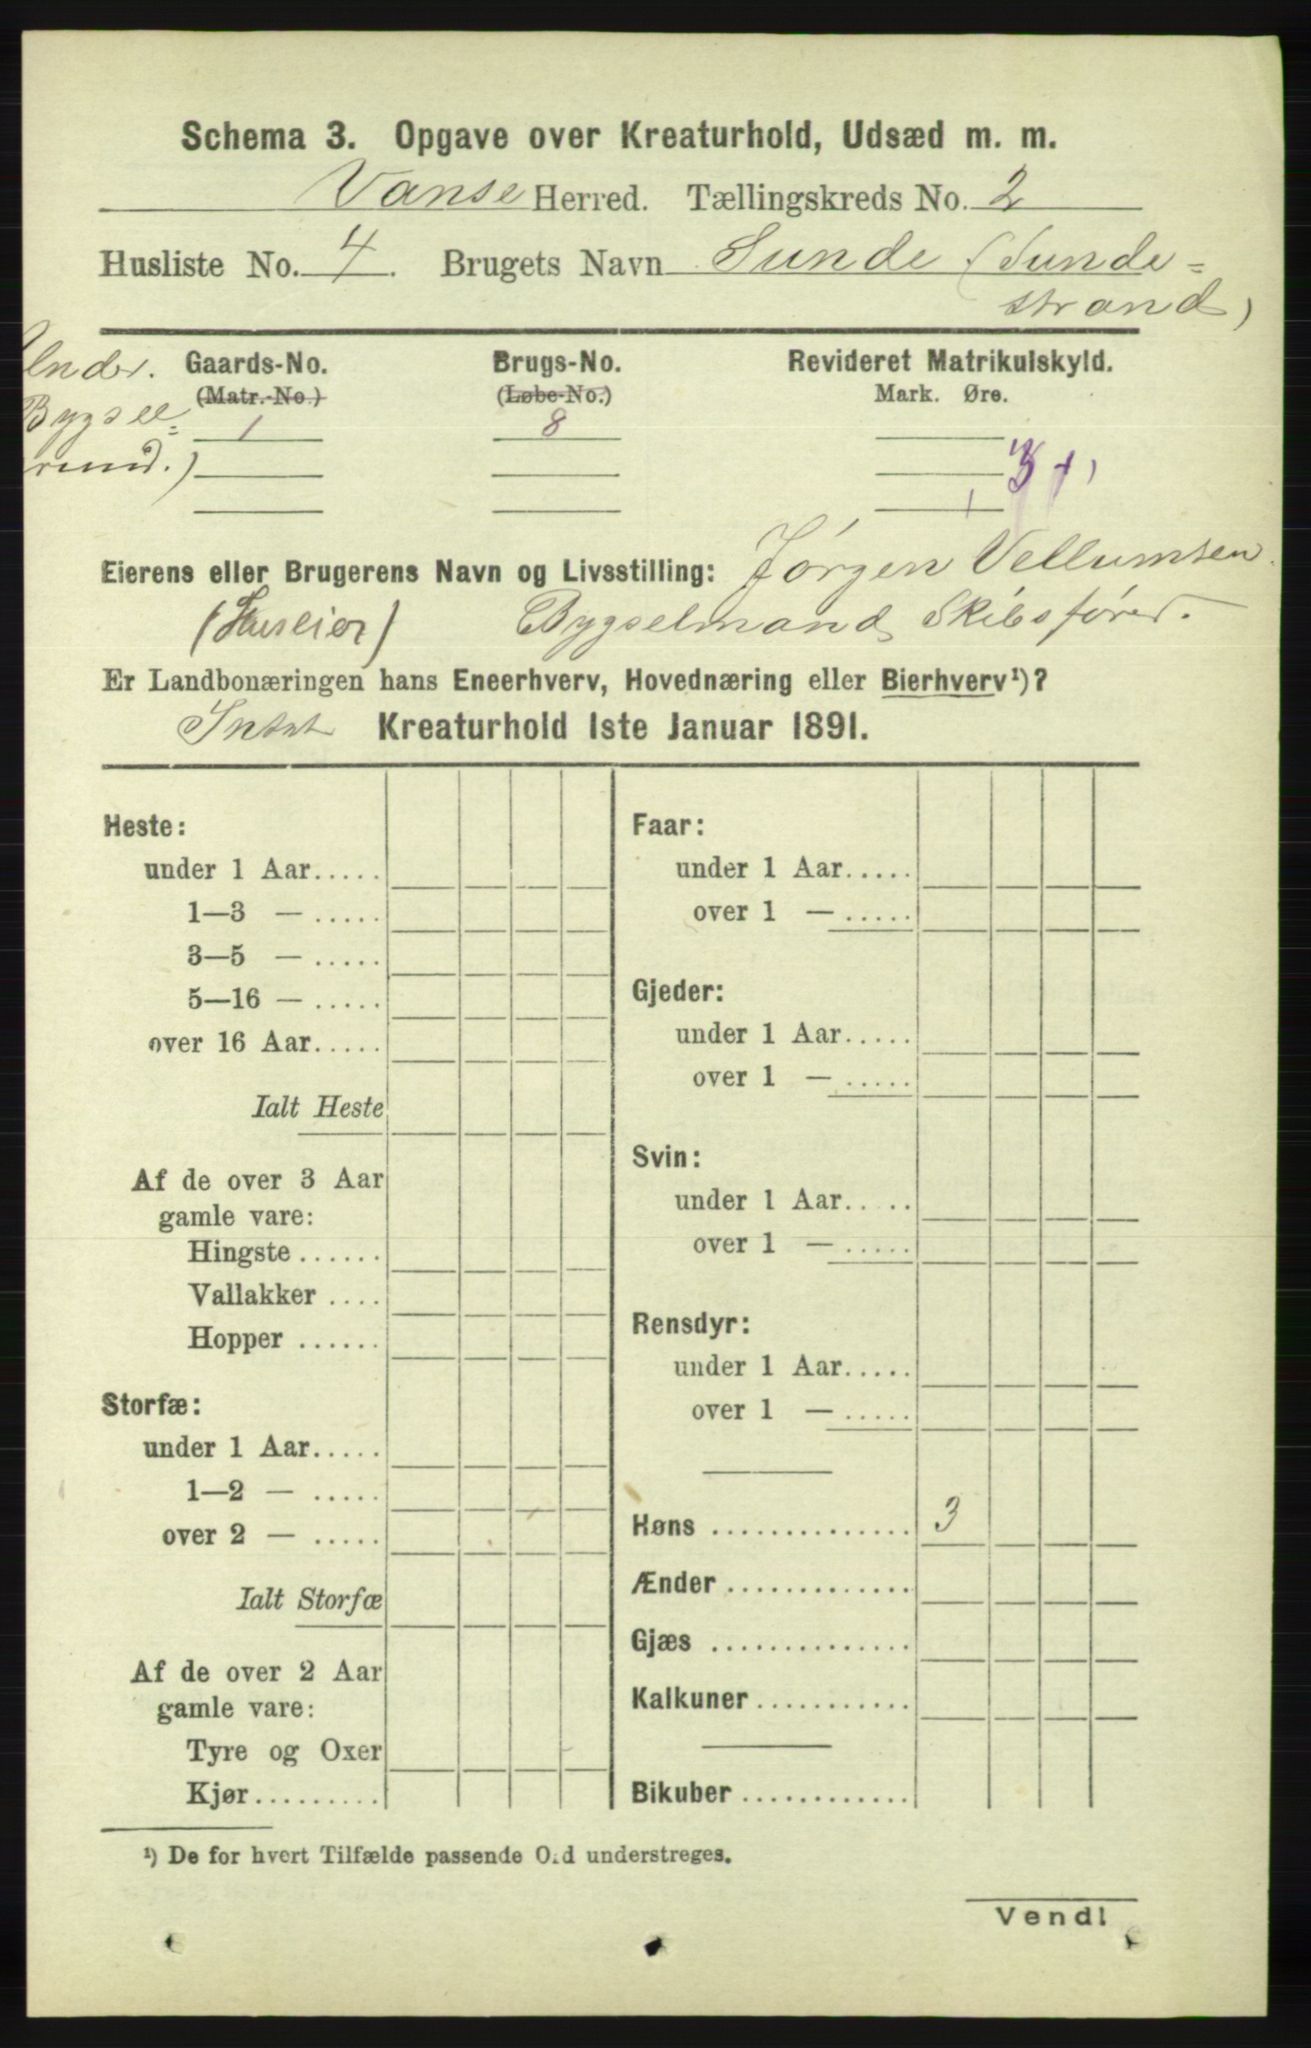 Schema 3. Opgave over Kreaturhold, Udsæd m. m.
Vanse Herred. Tællingskreds No. 2
Husliste No. 4. Brugets Navn Sunde (Sunde=
strand)
Under. Gaards-No. Brugs-No. Revideret Matrikulskyld.
Bygsel= (Matr.-No.) (Løbe-No.) Mark. Øre.
1 8
rund.)
Eierens eller Brugerens Navn og Livsstilling: Jørgen Vellumsen
(Huseier) Bygselmand Skibsfører.
Er Landbonæringen hans Eneerhverv, Hovednæring eller Bierhverv¹)?
Intet Kreaturhold 1ste Januar 1891.
Heste:
under 1 Aar.....
1—3 — .....
3—5 — .....
5—16 — .....
over 16 Aar.....
Ialt Heste
Af de over 3 Aar
gamle vare:
Hingste ......
Vallakker ....
Hopper ......
Storfæ:
under 1 Aar.....
1—2 — .....
over 2 — .....
Ialt Storfæ
Af de over 2 Aar
gamle vare:
Tyre og Oxer
Kjør.........
Faar:
under 1 Aar.....
over 1 — .....
Gjeder:
under 1 Aar.....
over 1 — .....
Svin:
under 1 Aar.....
over 1 — .....
Rensdyr:
under 1 Aar.....
over 1 — .....
Høns .............. 3
Ænder .............
Gjæs ..............
Kalkuner ...........
Bikuber .............
¹) De for hvert Tilfælde passende Ord understreges.
Vend!